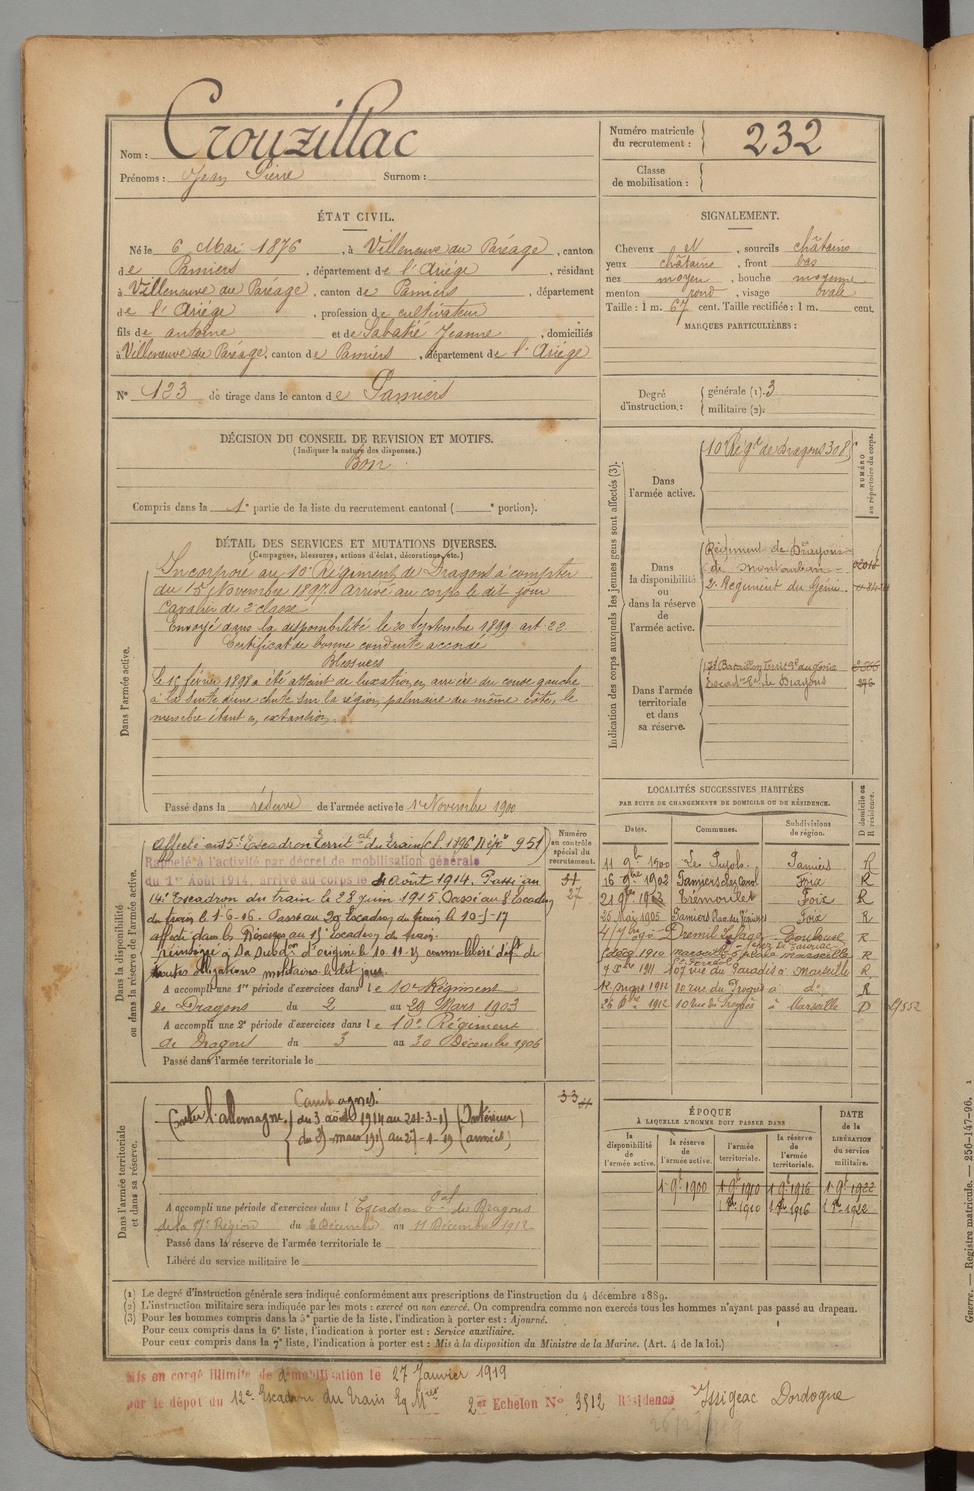 Nom : Crouzillac
Prénoms : Jean Pierre Surnom :
Numéro matricule du recrutement : 232
Classe de mobilisation :
ÉTAT CIVIL.
Né le 6 Mai 1876, à Villeneuve du Paréage, canton
de Pamiers, département de l'Ariège, résidant
à Villeneuve du Paréage, canton de Pamiers, département
de l'Ariège, profession de cultivateur
fils de antoine et de Sabatié Jeanne, domiciliés
à Villeneuve du Paréage, canton de Pamiers, département de l'Ariège
N° 123 de tirage dans le canton de Pamiers
SIGNALEMENT.
Cheveux et, sourcils châtains
yeux châtains, front bas
nez moyen, bouche moyenne
menton rond, visage ovale
Taille : 1 m. 67 cent. Taille rectifiée : 1 m. cent.
MARQUES PARTICULIÈRES :
Degré d'instruction : générale (1). 3
militaire (2).
DÉCISION DU CONSEIL DE REVISION ET MOTIFS.
(Indiquer la nature des dispenses.)
Bon
Compris dans la 1e partie de la liste du recrutement cantonal ( e portion).
Indication des corps auxquels les jeunes gens sont affectés (3).
NUMÉRO au répertoire du corps.
Dans l'armée active.
10e Rég. de Dragons 308
Dans la disponibilité ou dans la réserve de l'armée active.
Régiment de Dragons
de Montauban
2e Régiment du Génie
Dans l'armée territoriale et dans sa réserve.
17e Bataillon Territ. du Génie
Escadr. de Dragons
DÉTAIL DES SERVICES ET MUTATIONS DIVERSES.
(Campagnes, blessures, actions d'éclat, décorations, etc.)
Dans l'armée active.
Incorporé au 10e Régiment de Dragons à compter
du 15 Novembre 1897. Arrivé au corps le dit jour
Cavalier de 2e classe
Envoyé dans la disponibilité le 20 Septembre 1899 art. 22
Certificat de bonne conduite accordé
Blessures
le 16 février 1898 a été atteint de luxation en arrière du coude gauche
à la suite d'une chute sur la région palmaire du même côté, le
membre étant en extension.
Passé dans la réserve de l'armée active le 1er Novembre 1900
Dans la disponibilité ou dans la réserve de l'armée active.
Numéro au contrôle spécial du recrutement.
Affecté au 15e Escadron territal du train (cl. 1896 951)
Rappelé à l'activité par décret de mobilisation générale
du 1er Août 1914, arrivé au corps le Août 1914. Passé au
14e Escadron du train le 28 juin 1915. Passé au 8e Escadron
du train le 1-6-16. Passé au 20 Escadron du train le 10-5-17
affecté dans la Réserve au 15e Escadron du train.
A accompli une 1re période d'exercices dans le 10e Régiment
de Dragons du 2 au 29 Mars 1903
A accompli une 2e période d'exercices dans le 10e Régiment
de Dragons du 3 au 20 Décembre 1906
Passé dans l'armée territoriale le
LOCALITÉS SUCCESSIVES HABITÉES
PAR SUITE DE CHANGEMENTS DE DOMICILE OU DE RÉSIDENCE.
D domicile ou R résidence.
Dates. Communes. Subdivisions de région.
11 9bre 1900 Les Pujols Pamiers R
16 9bre 1902 Pamiers Foix R
21 9bre Trémoulet Foix R
26 Mai 1905 Pamiers Foix R
Dremil Lafage Toulouse R
1910 Marseille R
7 Xbre 1911 107 rue du Paradis à Marseille R
1912 10 rue du Progrès à do R
26 1912 10 rue du Progrès à Marseille D
Dans l'armée territoriale et dans sa réserve.
Campagnes
Contre l'allemagne du 3 août 1914 au (Intérieur)
(armées)
A accompli une période d'exercices dans l Escadron de Dragons
de la 17e Région du 2 Décembre au 11 Décembre 1912
Passé dans la réserve de l'armée territoriale le
Libéré du service militaire le
ÉPOQUE
À LAQUELLE L'HOMME DOIT PASSER DANS
DATE de la LIBÉRATION du service militaire.
la disponibilité de l'armée active. la réserve de l'armée active. l'armée territoriale. la réserve de l'armée territoriale.
1 9bre 1900 1 9bre 1910 1 9bre 1916 1 9bre 1922
1 1910 1 1916 1 1922
(1) Le degré d'instruction générale sera indiqué conformément aux prescriptions de l'instruction du 4 décembre 1889.
(2) L'instruction militaire sera indiquée par les mots : exercé ou non exercé. On comprendra comme non exercés tous les hommes n'ayant pas passé au drapeau.
(3) Pour les hommes compris dans la 5e partie de la liste, l'indication à porter est : Ajourné.
Pour ceux compris dans la 6e liste, l'indication à porter est : Service auxiliaire.
Pour ceux compris dans la 7e liste, l'indication à porter est : Mis à la disposition du Ministre de la Marine. (Art. 4 de la loi.)
Mis en congé illimité de démobilisation le 27 Janvier 1919
par le dépot du 12e Escadron du Train 2er Echelon No 3512 Résidence Issigeac Dordogne
Guerre. — Registre matricule. — 256-147-96. 1